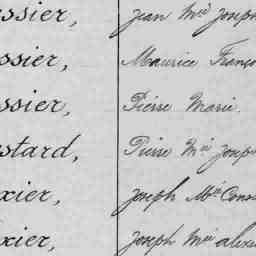 ssier, Jean Mie Joseph
ssier, Maurice Franço
ssier, Pierre Marie.
stard, Pierre Mie Josep
xier, Joseph Mie Cons
xier, Joseph Mie Alexi